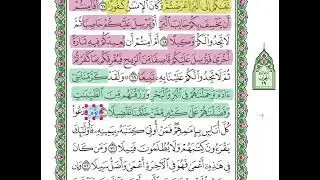 نَجَّىٰكُمْ إِلَى ٱلْبَرِّ أَعْرَضْتُمْ وَكَانَ ٱلْإِنسَٰنُ كَفُورًا ٦٧ أَفَأَمِنتُمْ
أَن يَخْسِفَ بِكُمْ جَانِبَ ٱلْبَرِّ أَوْ يُرْسِلَ عَلَيْكُمْ حَاصِبًا ثُمَّ
لَا تَجِدُوا۟ لَكُمْ وَكِيلًا ٦٨ أَمْ أَمِنتُمْ أَن يُعِيدَكُمْ فِيهِ تَارَةً
أُخْرَىٰ فَيُرْسِلَ عَلَيْكُمْ قَاصِفًا مِّنَ ٱلرِّيحِ فَيُغْرِقَكُم بِمَا كَفَرْتُمْ
ثُمَّ لَا تَجِدُوا۟ لَكُمْ عَلَيْنَا بِهِۦ تَبِيعًا ٦٩ وَلَقَدْ كَرَّمْنَا بَنِىٓ
ءَادَمَ وَحَمَلْنَٰهُمْ فِى ٱلْبَرِّ وَٱلْبَحْرِ وَرَزَقْنَٰهُم مِّنَ ٱلطَّيِّبَٰتِ
وَفَضَّلْنَٰهُمْ عَلَىٰ كَثِيرٍ مِّمَّنْ خَلَقْنَا تَفْضِيلًا ٧٠ يَوْمَ نَدْعُوا۟
كُلَّ أُنَاسٍۭ بِإِمَٰمِهِمْ فَمَنْ أُوتِىَ كِتَٰبَهُۥ بِيَمِينِهِۦ فَأُو۟لَٰٓئِكَ
يَقْرَءُونَ كِتَٰبَهُمْ وَلَا يُظْلَمُونَ فَتِيلًا ٧١ وَمَن كَانَ
فِى هَٰذِهِۦٓ أَعْمَىٰ فَهُوَ فِى ٱلْءَاخِرَةِ أَعْمَىٰ وَأَضَلُّ سَبِيلًا ٧٢